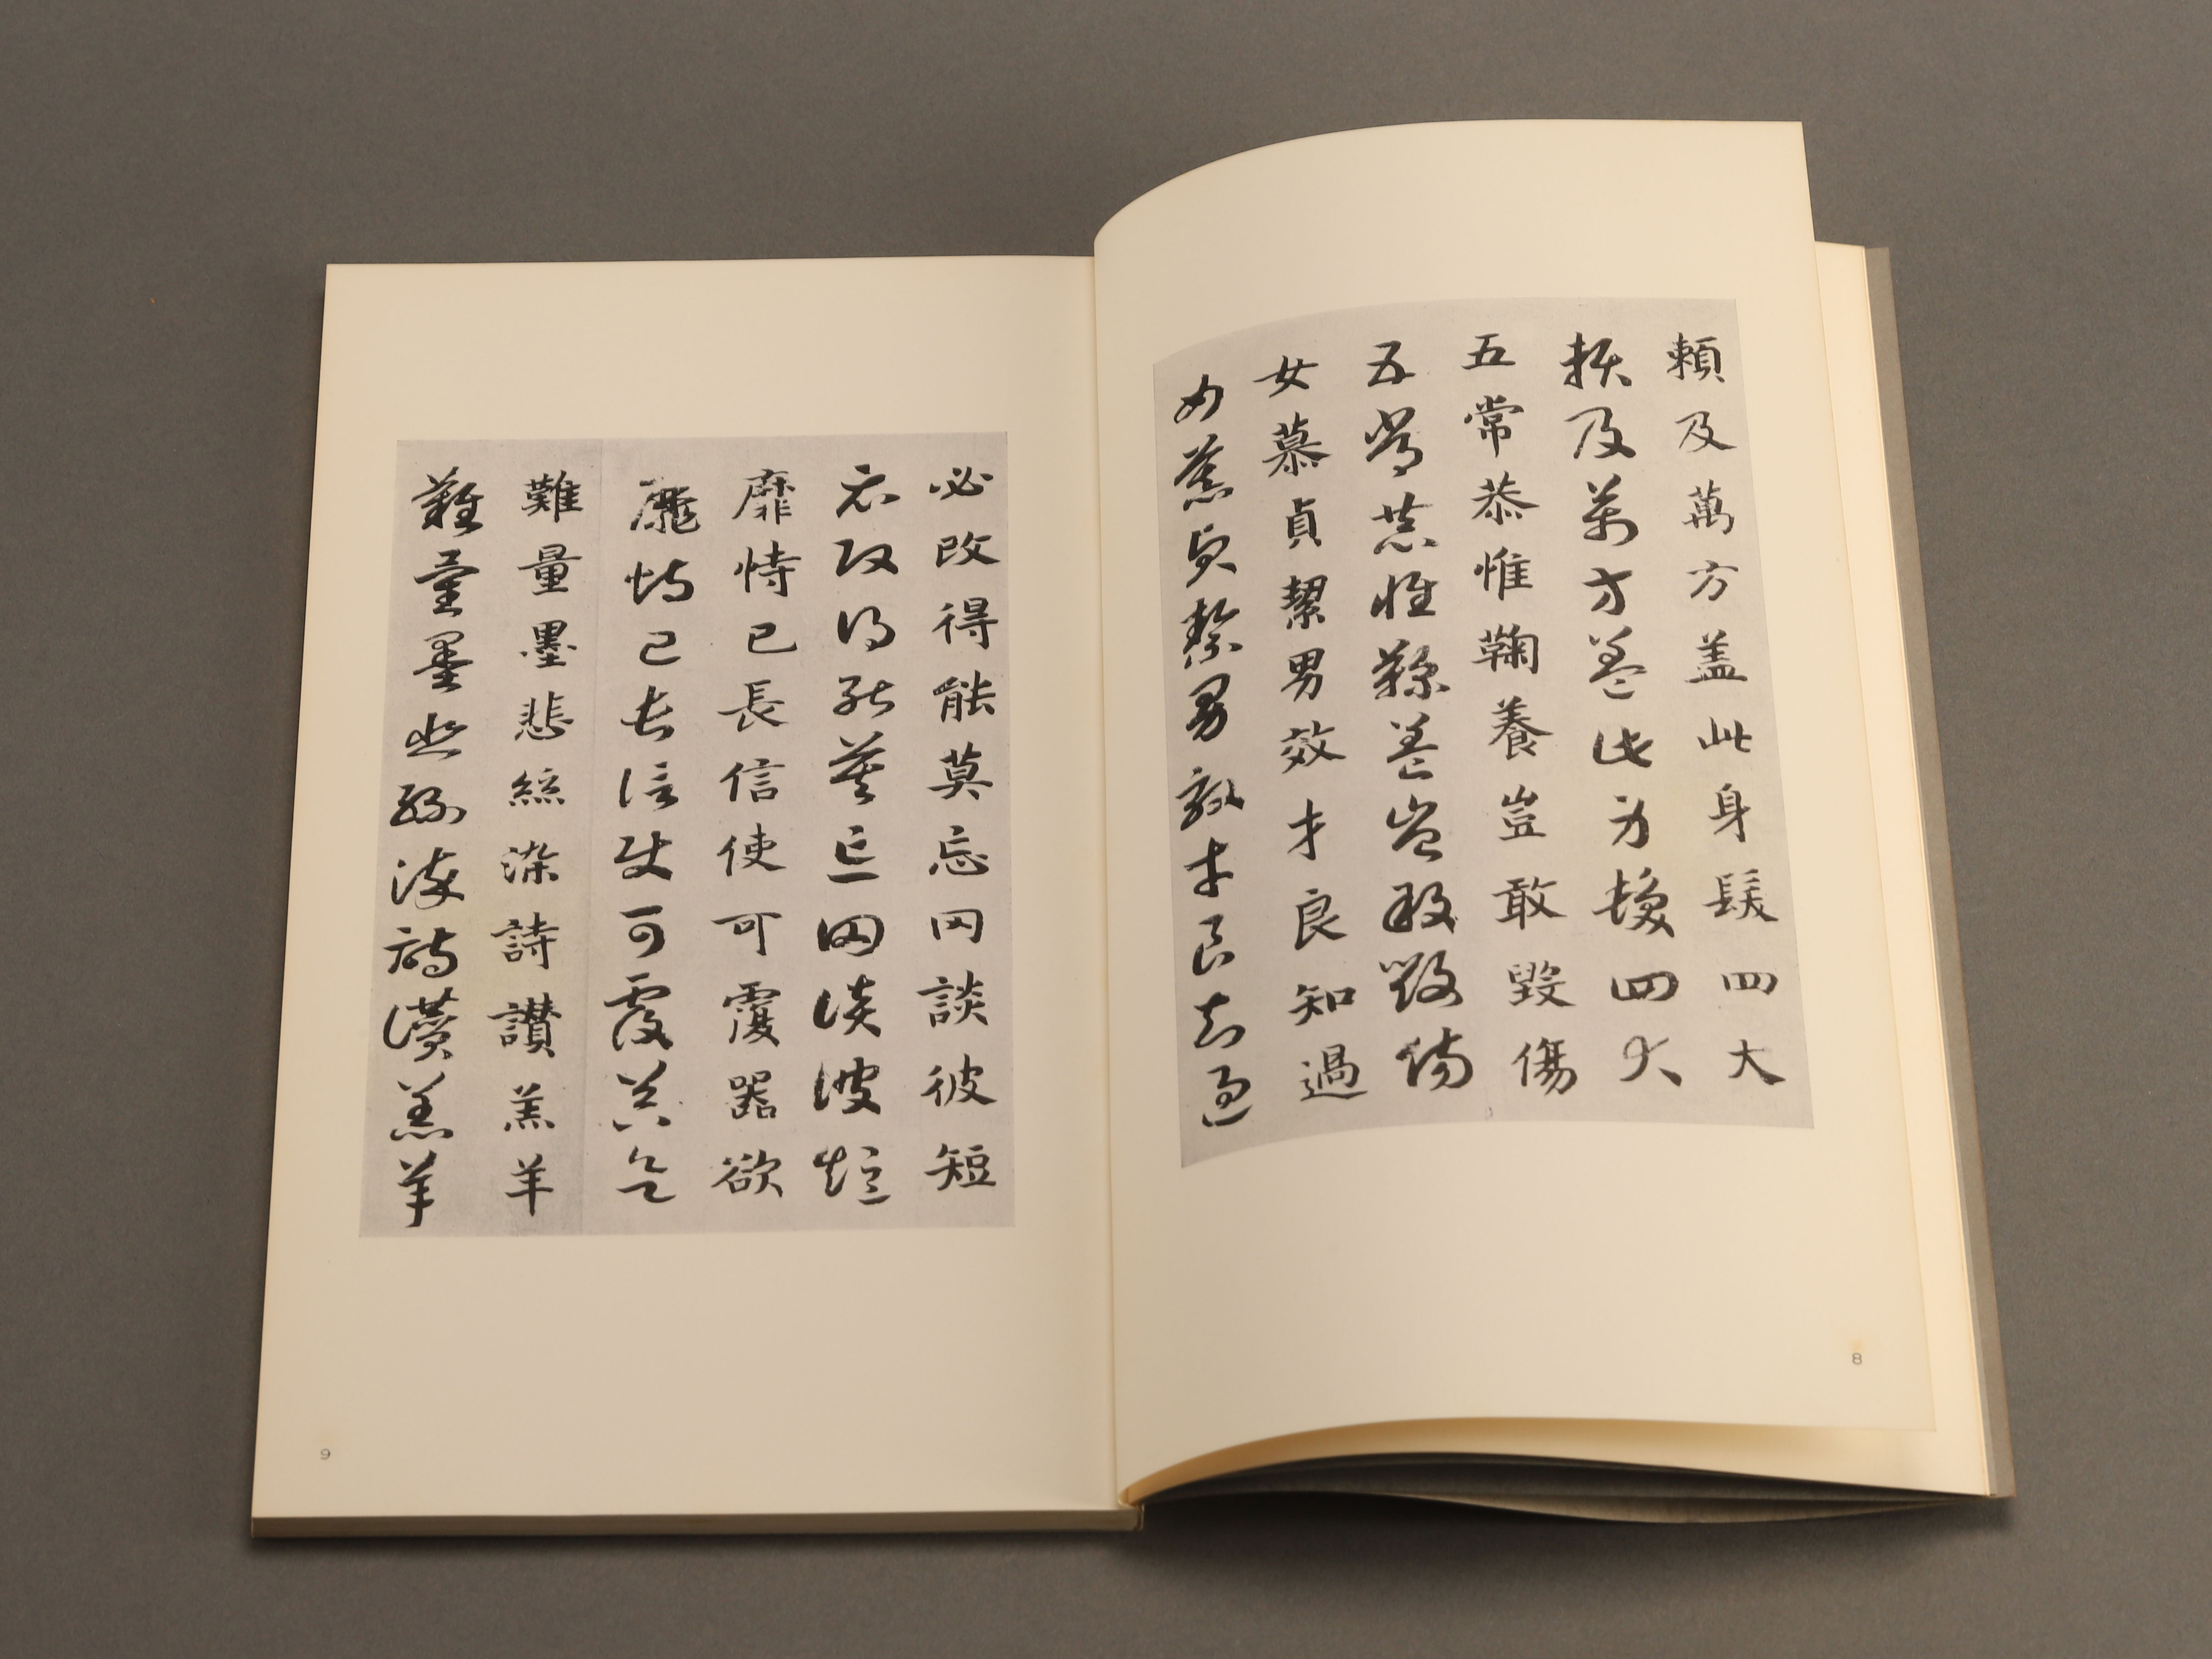 賴及萬方盖此身髮四大
賴及萬方盖此身髮四大
五常恭惟鞠養豈敢毀傷
五常恭惟鞠養豈敢毀傷
女慕貞絜男效才良知過
女慕貞絜男效才良知過
8
必改得能莫忘罔談彼短
必改得能莫忘罔談彼短
靡恃己長信使可覆器欲
靡恃己長信使可覆器欲
難量墨悲絲染詩讃羔羊
難量墨悲絲染詩讃羔羊
9